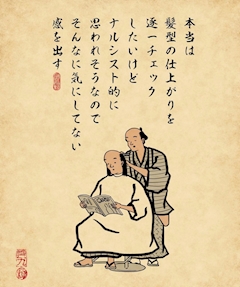 本当は
髪型の仕上がりを
逐一チェック
したいけど
ナルシスト的に
思われそうなので
そんなに気にしてない
感を出す